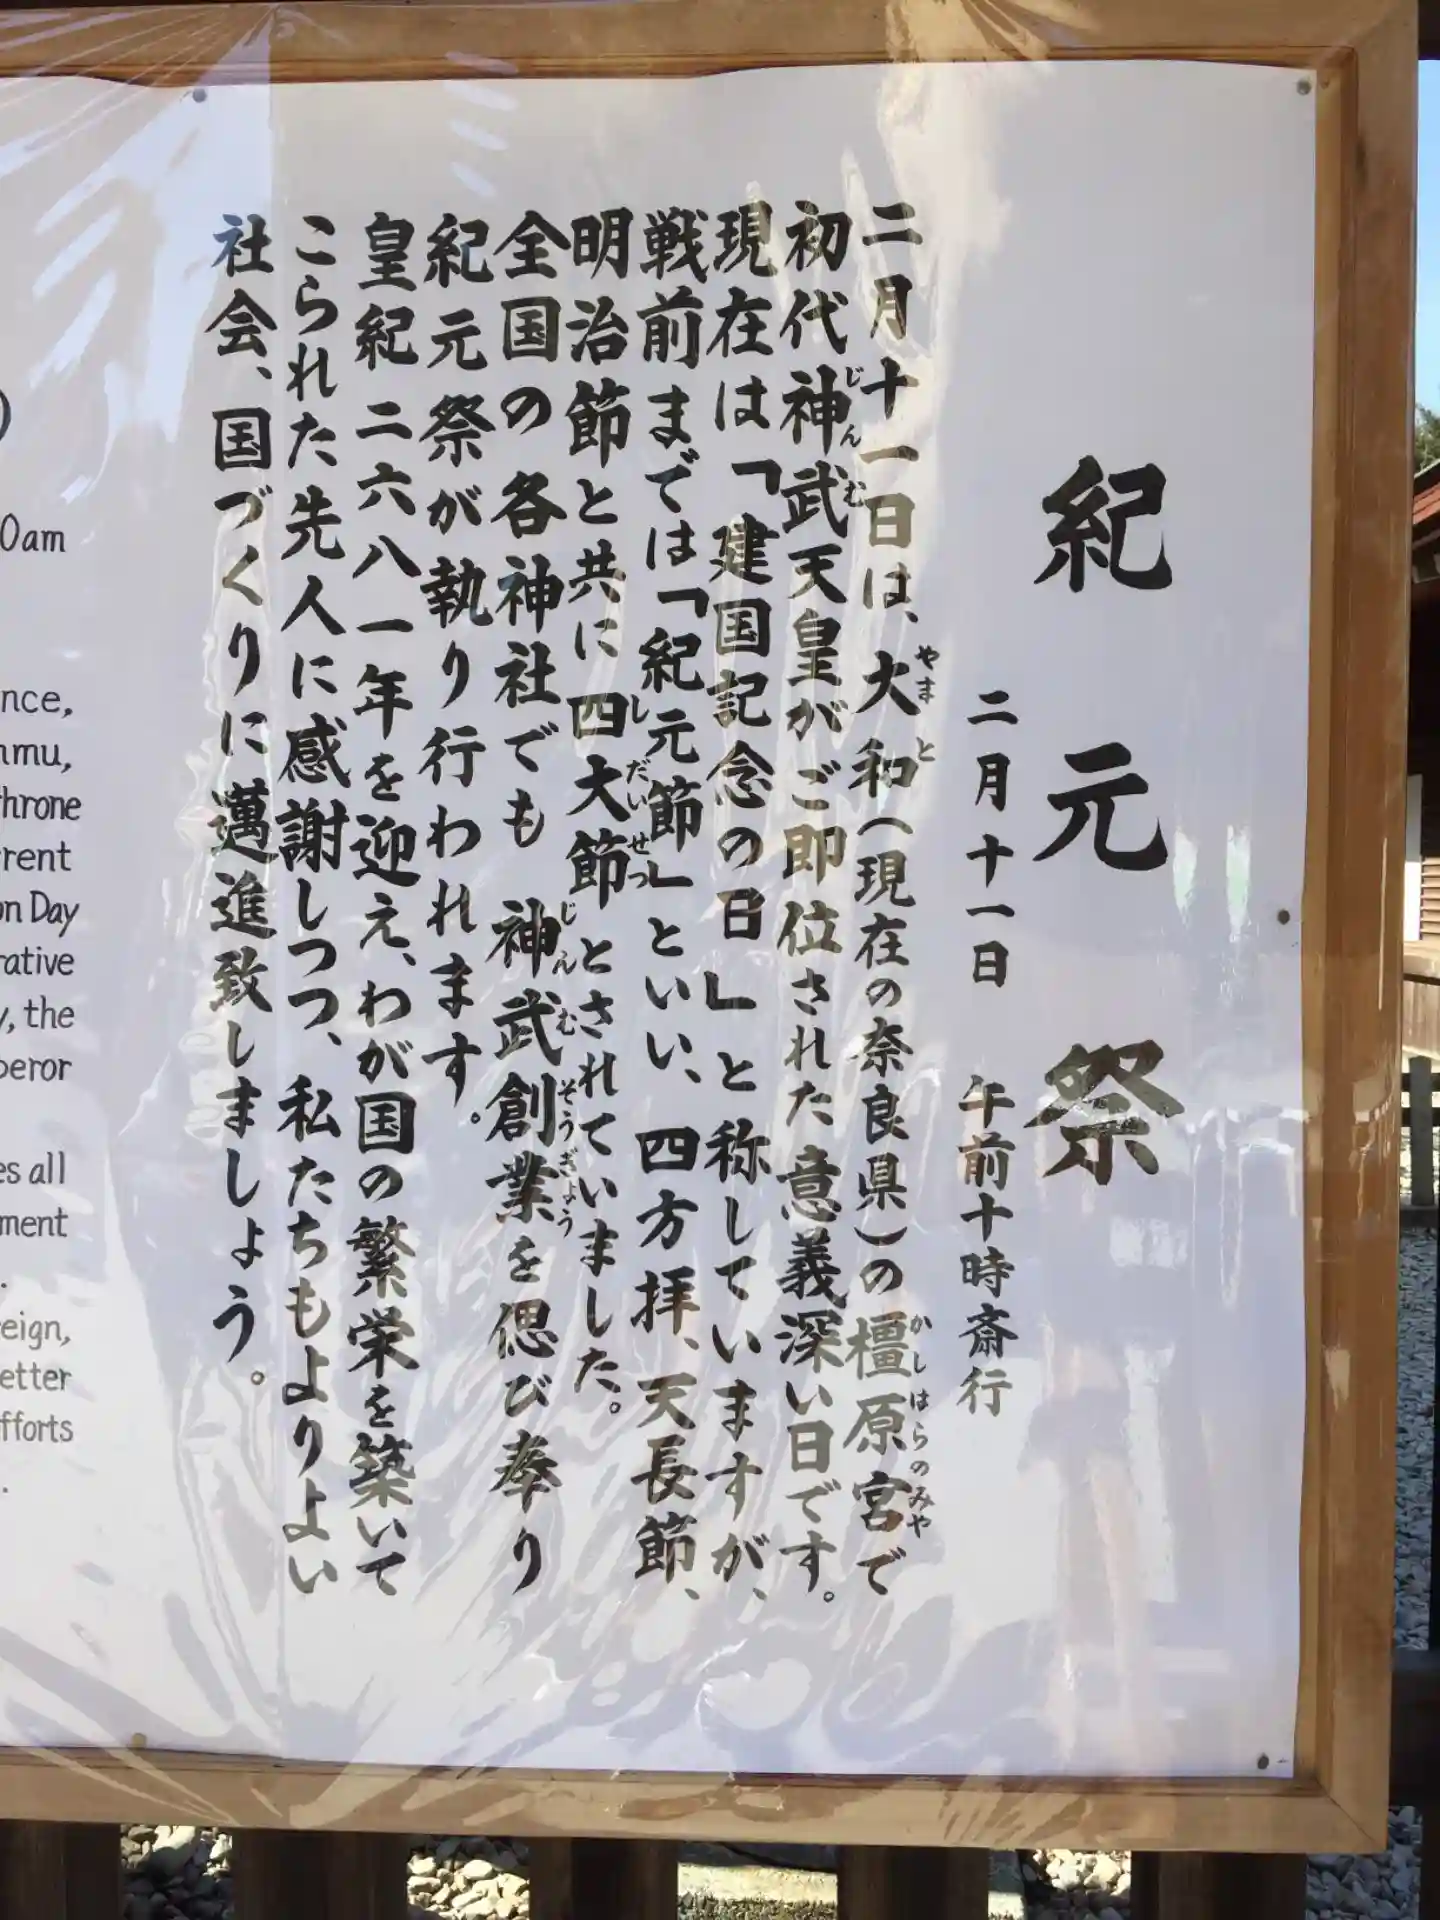 紀元祭
二月十一日 午前十時斎行
二月十一日は、大和（現在の奈良県）の橿原宮で
やまと
かしはらのみや
初代神武天皇がご即位された意義深い日です。
じんむ
現在は「建国記念の日」と称していますが、
戦前までは「紀元節」といい、四方拝、天長節、
明治節と共に四大節とされていました。
しだいせつ
全国の各神社でも神武創業を偲び奉り
じんむそうぎょう
紀元祭が執り行われます。
皇紀二六八一年を迎え、わが国の繁栄を築いて
こられた先人に感謝しつつ、私たちもよりよい
社会、国づくりに邁進致しましょう。
)
0am
nce,
nmu,
throne
rrent
on Day
rative
y, the
peror
es all
ment
.
eign,
etter
fforts
.